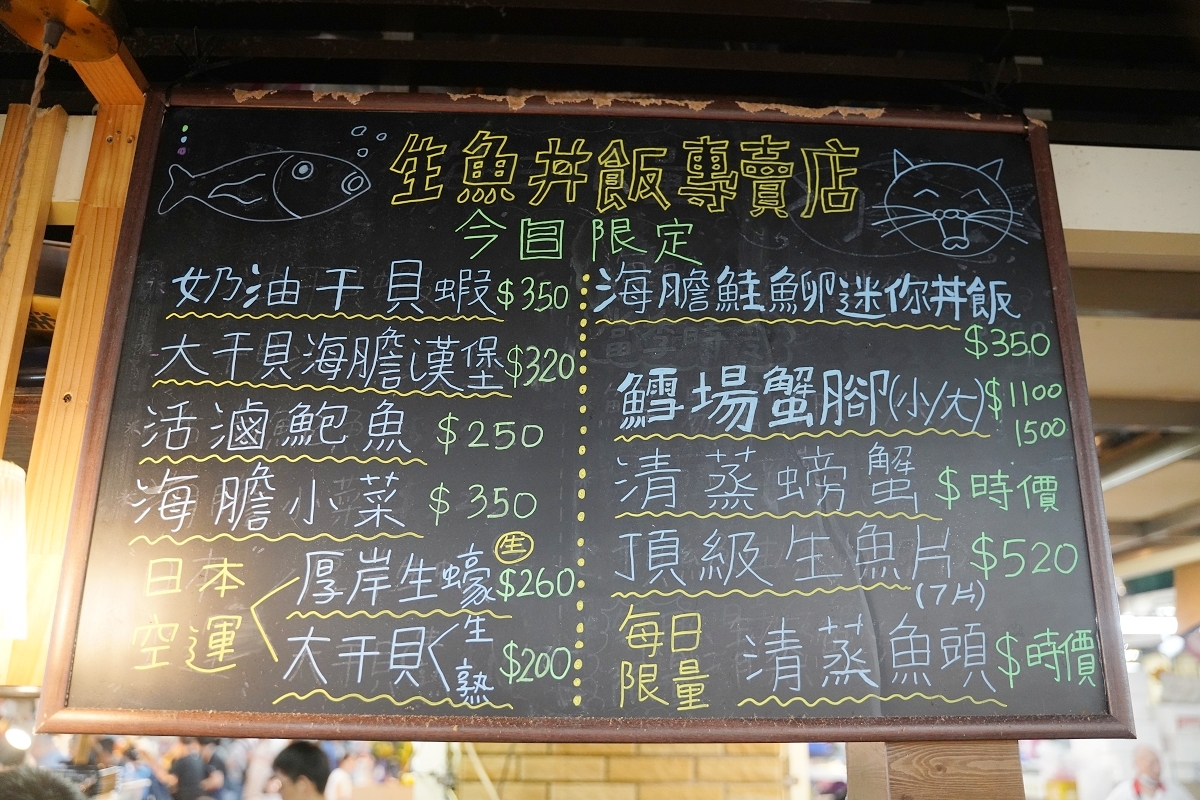 生魚丼飯專賣店
今日限定
奶油干貝蝦$350
大干貝海膽漢堡$320
活滷鮑魚 $250
海膽小菜 $350
日本空運
厚岸生蠔$260
生
大干貝 生 熟 $200
海膽鮭魚卵迷你丼飯
$350
鱈場蟹腳(小/大)$1100
1500
清蒸螃蟹 $時價
頂級生魚片 $520
(7片)
每日限量
清蒸魚頭$時價